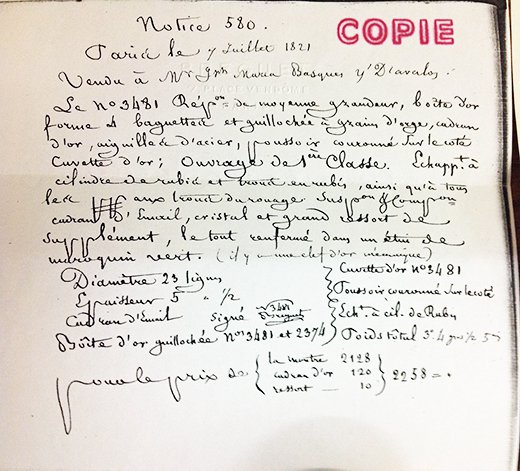 Notice 580.
COPIE
Paris le 7 Juillet 1821
Vendu à Mr Jph Maria Basques y D'avalos.
Le No 3481 Répon de moyenne grandeur, boîte d'or
forme à baguettes et guillochée à grain d'orge, cadran
d'or, aiguilles d'acier, poussoir couronné sur le coté
Cuvette d'or; Ouvrage de 1ère Classe. Echappt à
cilindre de rubis et trous en rubis, ainsi qu'à tous
les aux trous du rouage Suspon & Compon
cadran d'Email, cristal et grand ressort de
supplément, le tout renfermé dans un étui de
maroquin vert. (il y a une clef d'or mécanique)
Diamètre 23 lignes
Epaisseur 5 " 1/2
Cadran d'Email Signé No 3481
Boîte d'or guillochée Nos 3481 et 2374
Cuvette d'or No 3481
Poussoir couronné sur le coté
Echt à cil. de Rubis
Poids total
pour le prix de
la montre 2128
cadran d'or 120
ressort — 10
2258 =